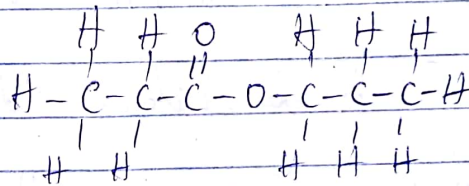 H H O H H H
H-C-C-C-O-C-C-C-H
H H H H H